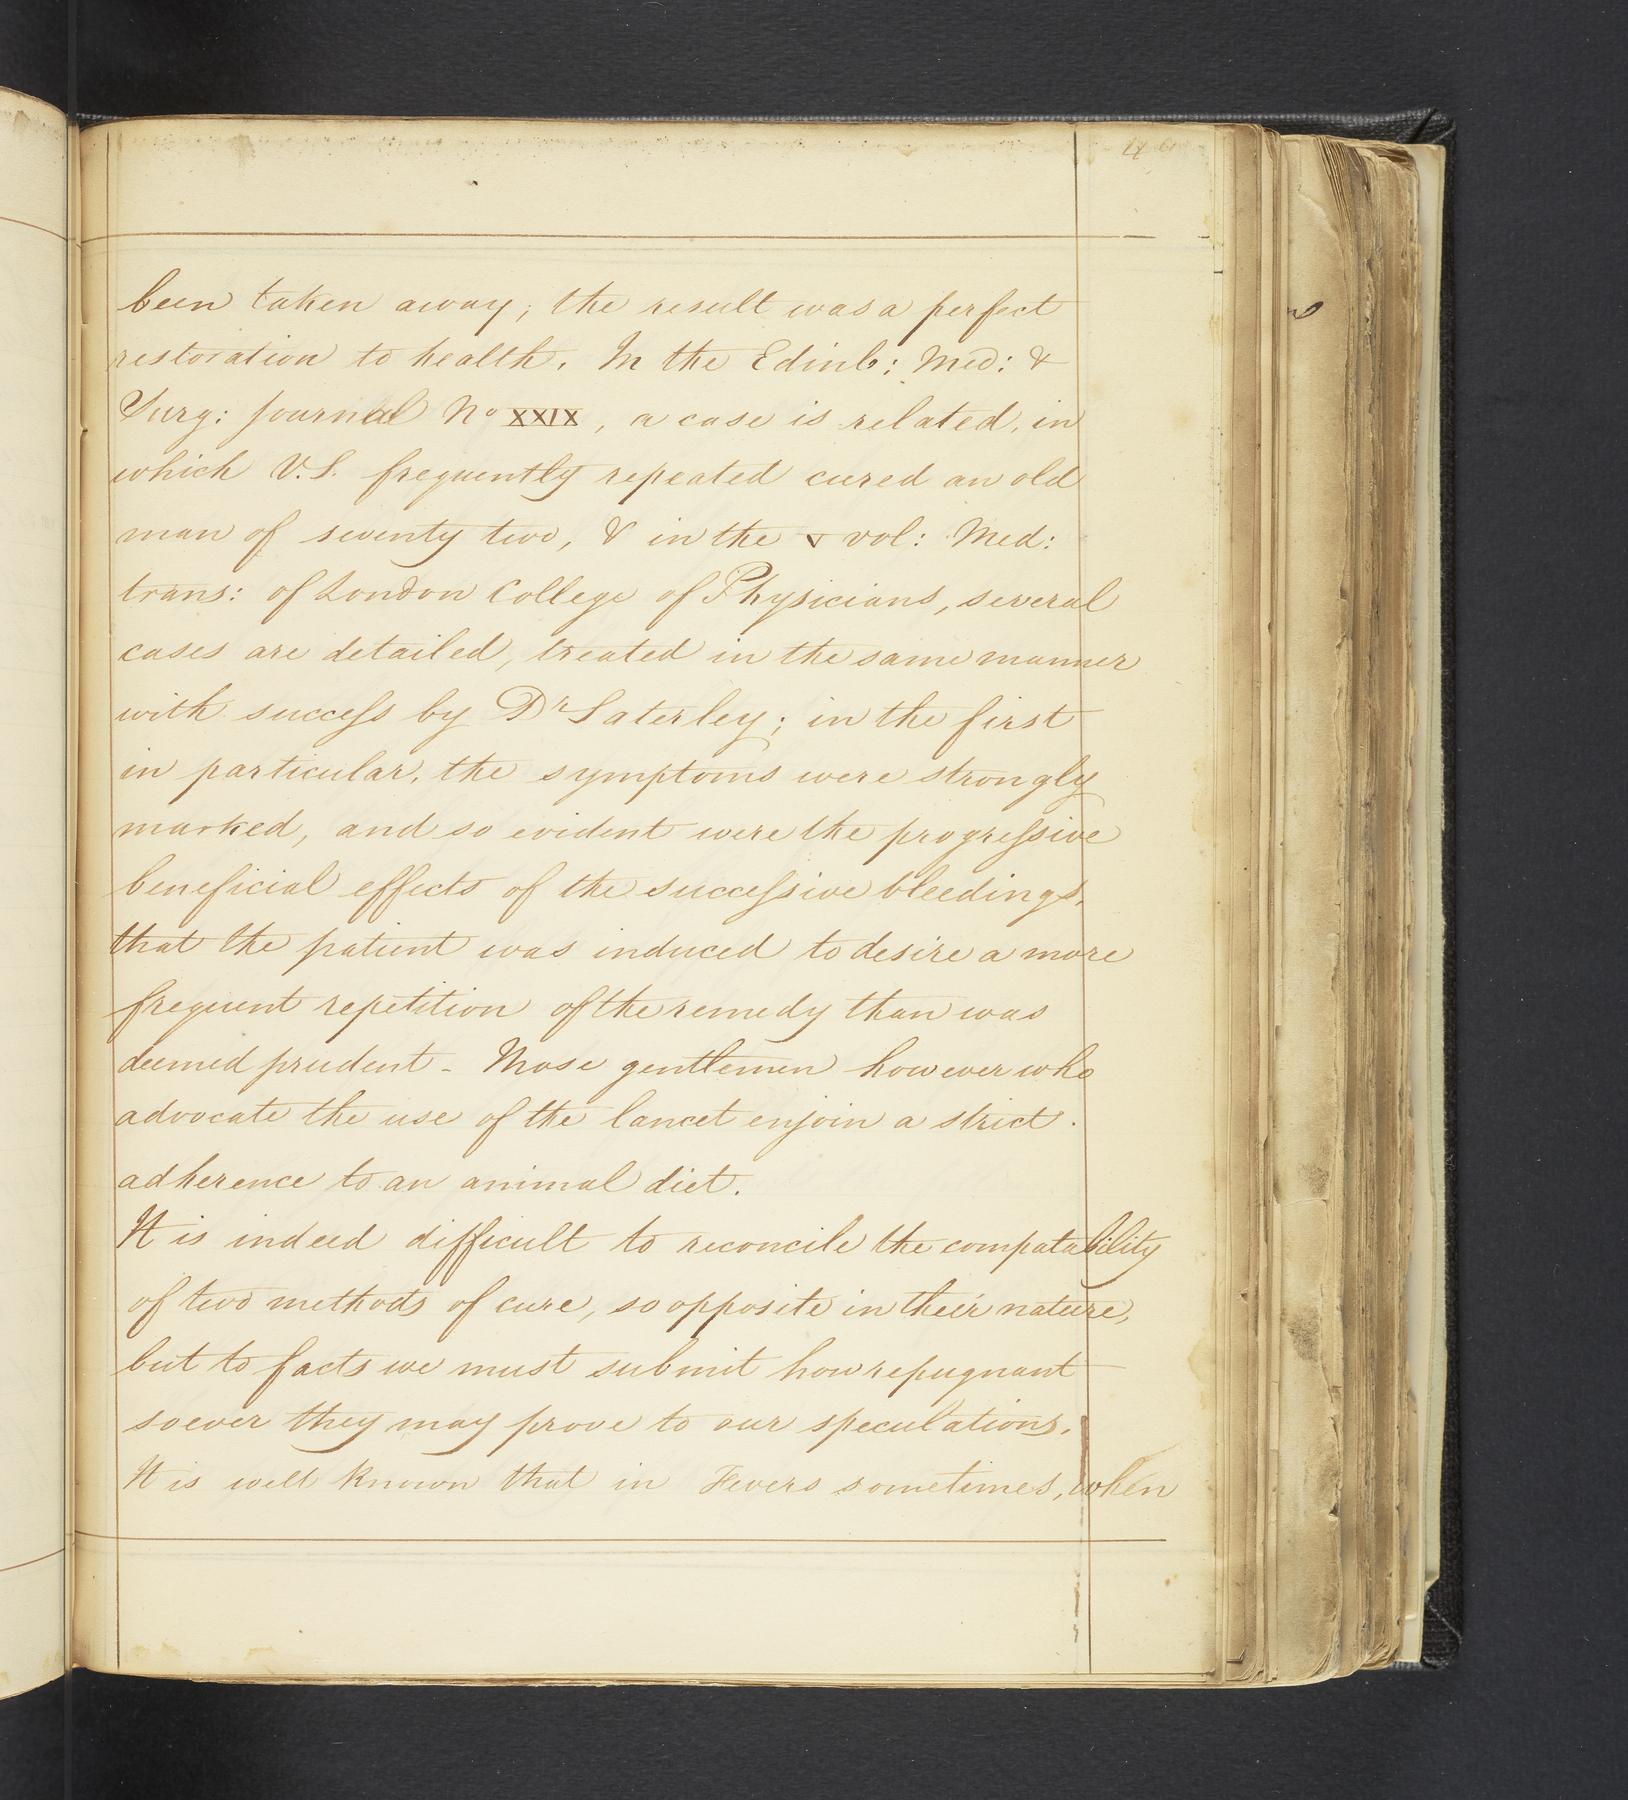 been taken away; the result was a perfect
restoration to health. In the Edinb: Med: &
Surg: Journal No XXIX, a case is related, in
which V.S. frequently repeated cured an old
man of seventy two, & in the v vol: Med:
trans: of London College of Physicians, several
cases are detailed, treated in the same manner
with success by Dr Saterley; in the first
in particular, the symptoms were strongly
marked, and so evident were the progressive
beneficial effects of the successive bleedings,
that the patient was induced to desire a more
frequent repetition of the remedy than was
deemed prudent - Those gentlemen however who
advocate the use of the lancet enjoin a strict
adherence to an animal diet.
It is indeed difficult to reconcile the compatability
of two methods of cure, so opposite in their nature,
but to facts we must submit how repugnant
soever they may prove to our speculations.
It is well known that in Fevers sometimes, when